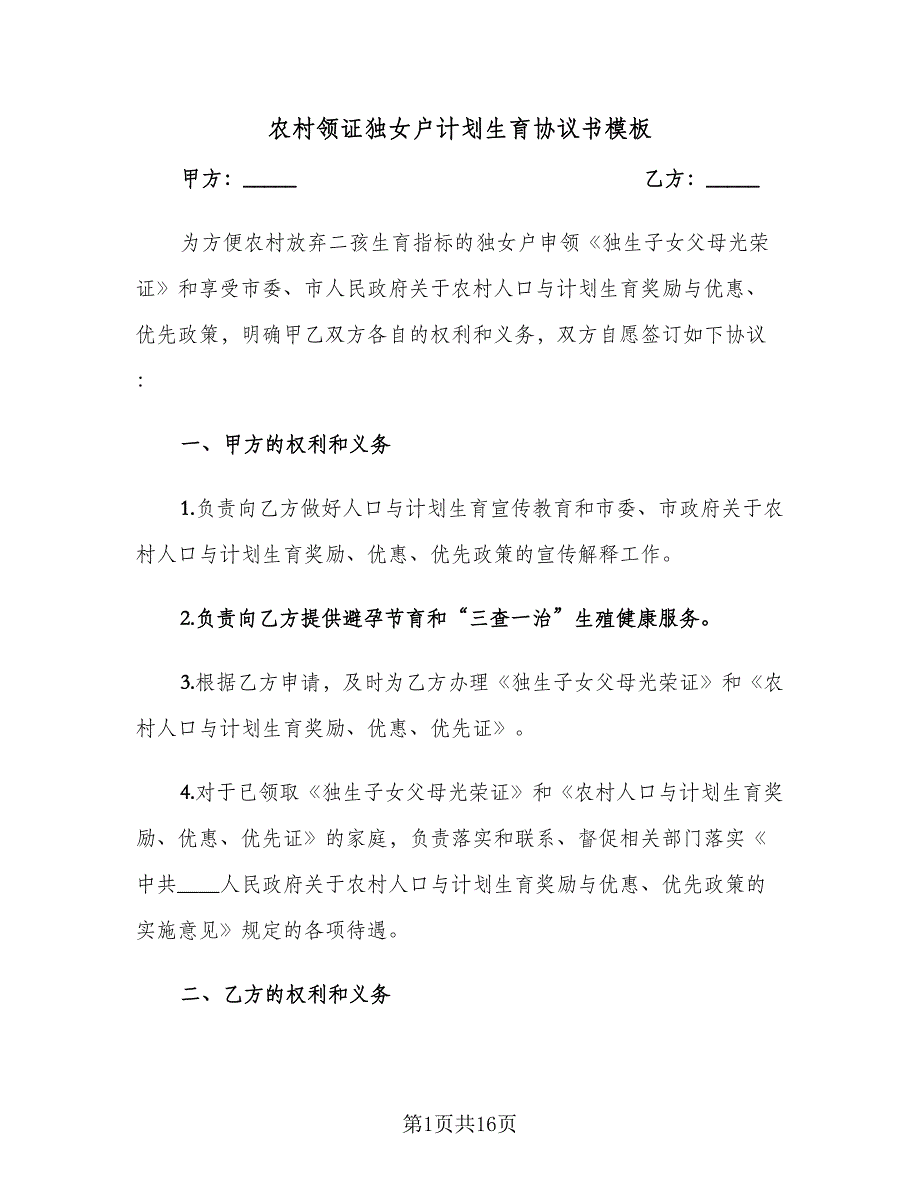 农村领证独女户计划生育协议书模板
甲方：_____ 乙方：_____
为方便农村放弃二孩生育指标的独女户申领《独生子女父母光荣
证》和享受市委、市人民政府关于农村人口与计划生育奖励与优惠、
优先政策，明确甲乙双方各自的权利和义务，双方自愿签订如下协议
：
一、甲方的权利和义务
1.负责向乙方做好人口与计划生育宣传教育和市委、市政府关于农
村人口与计划生育奖励、优惠、优先政策的宣传解释工作。
2.负责向乙方提供避孕节育和“三查一治”生殖健康服务。
3.根据乙方申请，及时为乙方办理《独生子女父母光荣证》和《农
村人口与计划生育奖励、优惠、优先证》。
4.对于已领取《独生子女父母光荣证》和《农村人口与计划生育奖
励、优惠、优先证》的家庭，负责落实和联系、督促相关部门落实《
中共____人民政府关于农村人口与计划生育奖励与优惠、优先政策的
实施意见》规定的各项待遇。
二、乙方的权利和义务
第1页共16页